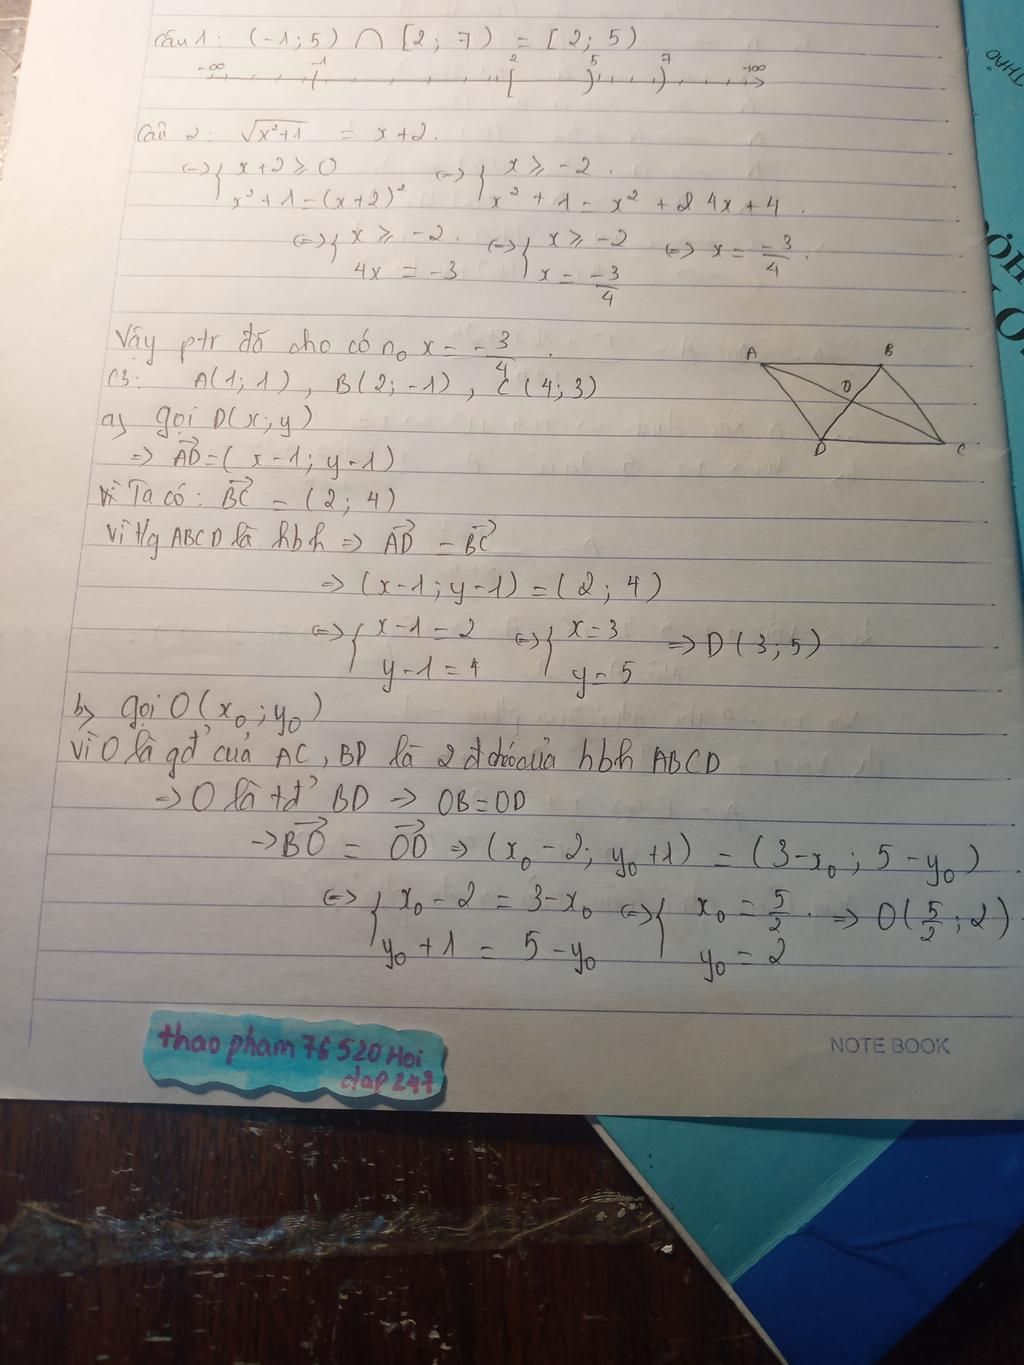 Câu 1: (-1; 5) ∩ [2; 7) = [2; 5)
-∞ -1 2 5 7 +∞
Câu 2: √(x²+1) = x+2.
⇔ { x+2 ≥ 0 ⇔ { x ≥ -2.
x²+1 = (x+2)² x² + 1 = x² + 4x + 4.
⇔ { x ≥ -2. ⇔ { x ≥ -2 ⇔ x = -3/4.
4x = -3 x = -3/4
Vậy ptr đã cho có n₀ x = -3/4.
C3: A(1; 1), B(2; -1), C(4; 3)
A B
O
D C
a) gọi D(x; y)
⇒ AD→ = (x-1; y-1)
Ta có: BC→ = (2; 4)
vì t/g ABCD là hbh ⇒ AD→ = BC→
⇒ (x-1; y-1) = (2; 4)
⇔ { x-1 = 2 ⇔ { x = 3 ⇒ D(3; 5)
y-1 = 4 y = 5
b) gọi O(x₀; y₀)
vì O là gđ' của AC, BD là 2 đ chéo của hbh ABCD
⇒ O là tđ' BD ⇒ OB = OD
→ BO→ = OD→ ⇒ (x₀-2; y₀+1) = (3-x₀; 5-y₀)
⇔ { x₀-2 = 3-x₀ ⇔ { x₀ = 5/2. ⇒ O(5/2; 2)
y₀+1 = 5-y₀ y₀ = 2
thao pham 76520 Hoi
dap 247
NOTE BOOK
THẢO